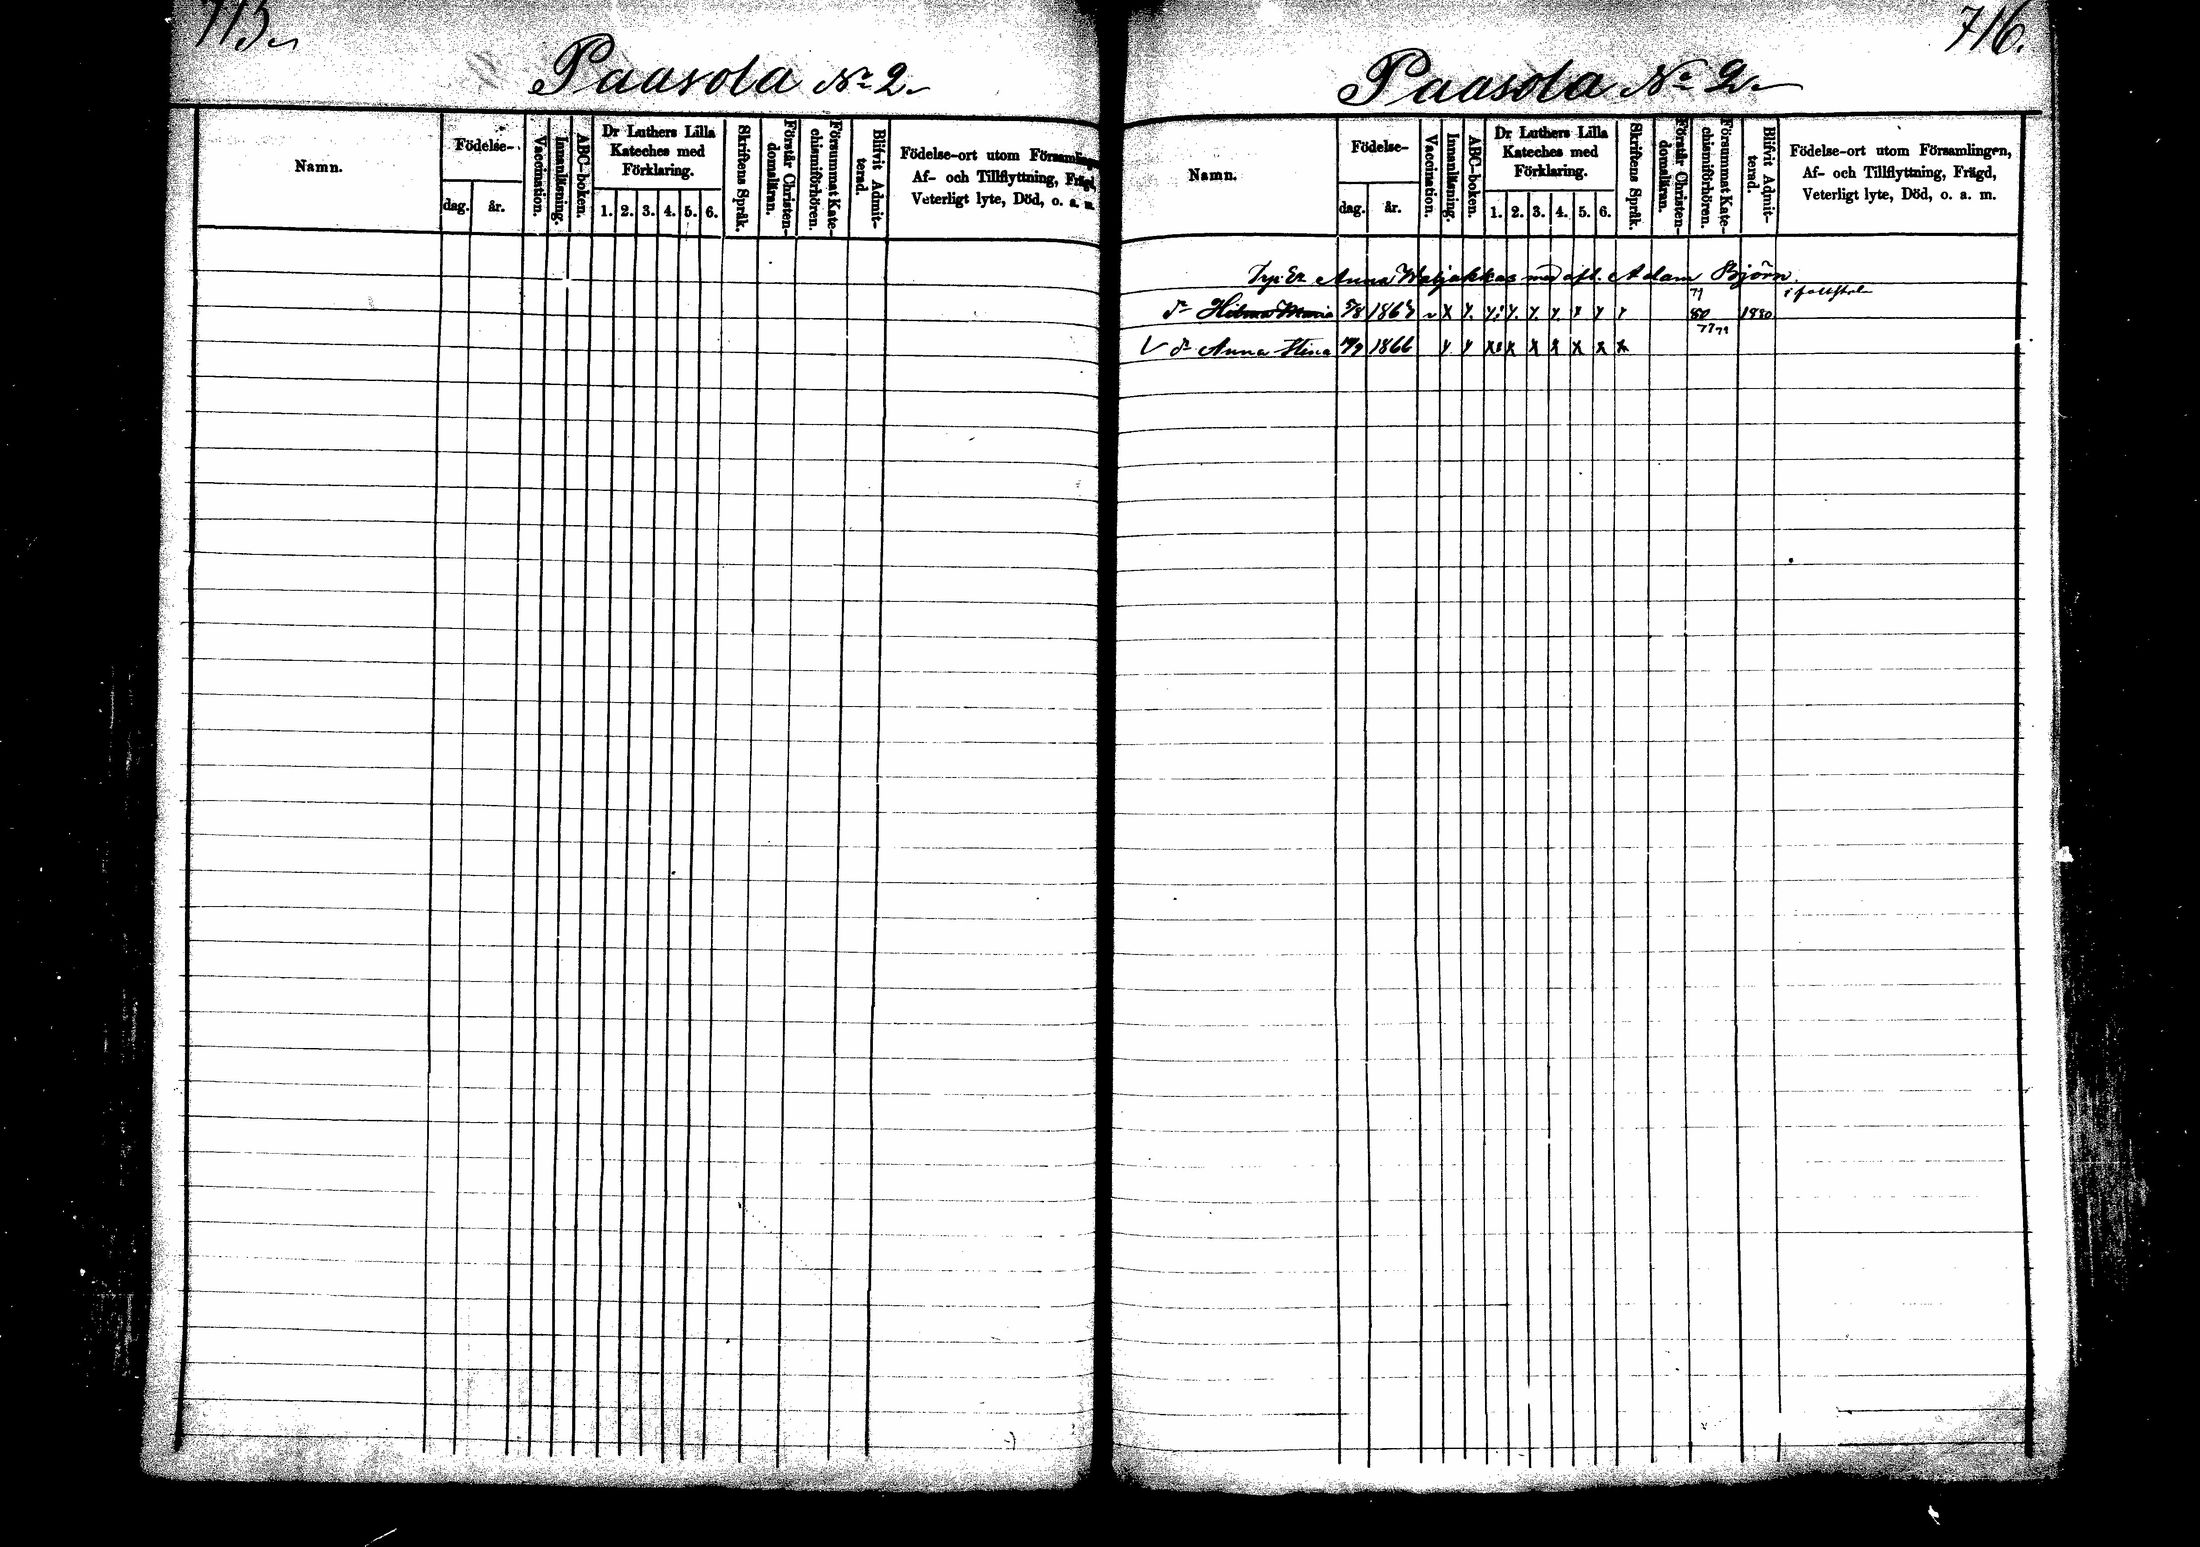 715.
Paasola No 2.
Namn.
Födelse-
dag.
år.
Vaccination.
Innanläsning.
ABC-boken.
Dr Luthers Lilla
Kateches med
Förklaring.
1. 2. 3. 4. 5. 6.
Skriftens Språk.
Förstår Christen-
domsläran.
Försummat Kate-
chismiförhören.
Blifvit Admit-
terad.
Födelse-ort utom Församlingen,
Af- och Tillflyttning, Frägd,
Veterligt lyte, Död, o. a. m.
716.
Paasola No 2.
Namn.
Födelse-
dag.
år.
Vaccination.
Innanläsning.
ABC-boken.
Dr Luthers Lilla
Kateches med
Förklaring.
1. 2. 3. 4. 5. 6.
Skriftens Språk.
Förstår Christen-
domsläran.
Försummat Kate-
chismiförhören.
Blifvit Admit-
terad.
Födelse-ort utom Församlingen,
Af- och Tillflyttning, Frägd,
Veterligt lyte, Död, o. a. m.
Anna med afl. Adam Björn
dr Hilma Maria 5/8 1863 x 79 80 1880
dr Anna Stina 1866 x x x x x x x 77 79